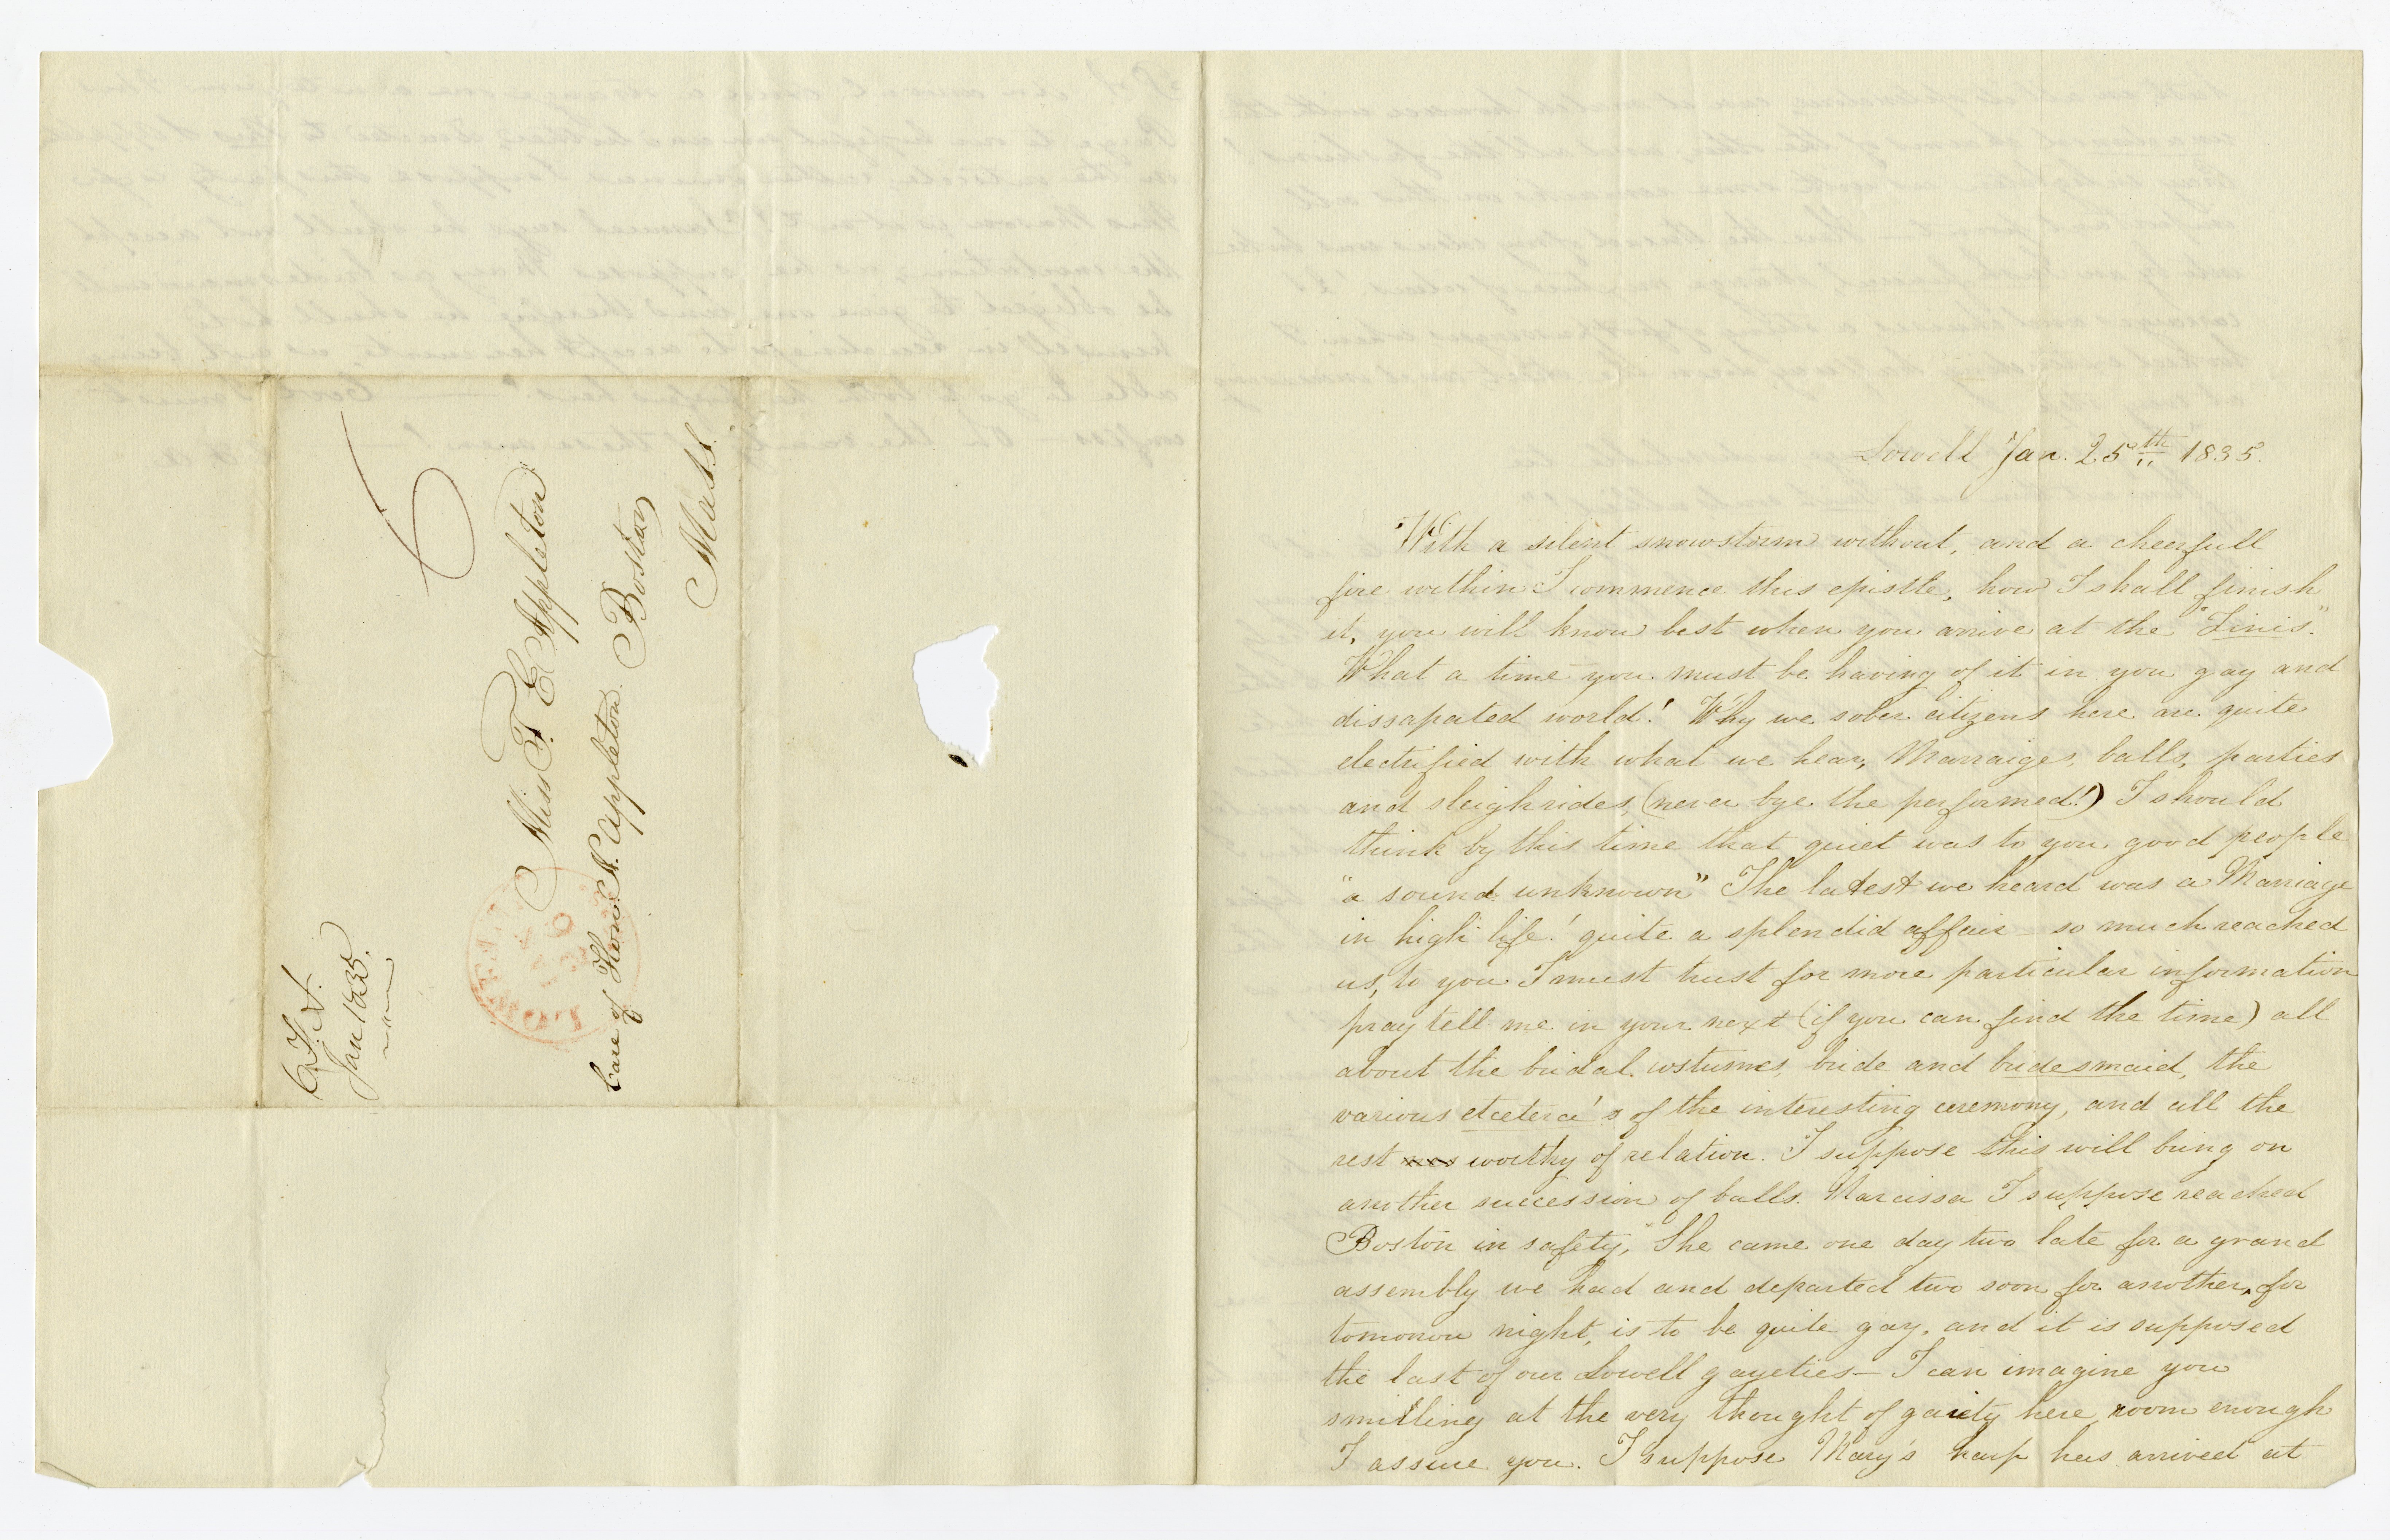 6
Miss F. E. Appleton
Care of Hon. N. Appleton. Boston
Mass.
LOWELL
JAN
26
MS
Jan 1835.
Lowell Jan. 25th 1835.
With a silent snowstorm without, and a cheerfull
fire within I commence this epistle, how I shall finish
it, you will know best when you arrive at the "Finis."
What a time you must be having of it in you gay and
dissapated world! Why we sober citizens here are quite
electrified with what we hear, Marraiges, balls, parties
and sleighrides, (never bye the performed!) I should
think by this time that quiet was to you good people
"a sound unknown" The latest we heard was a Marriage
in high life! quite a splendid affair – so much reached
us, to you I must trust for more particular information
pray tell me in your next (if you can find the time) all
about the bridal costumes, bride and bridesmaid, the
various etcetera's of the interesting ceremony, and all the
rest worthy of relation. I suppose this will bring on
another succession of balls. Narcissa I suppose reached
Boston in safety, She came one day two late for a grand
assembly we had and departed two soon for another, for
tomorrow night, is to be quite gay, and it is supposed
the last of our Lowell gayeties – I can imagine you
smilling at the very thought of gaiety here, room enough
I assure you. I suppose Mary's harp has arrived at